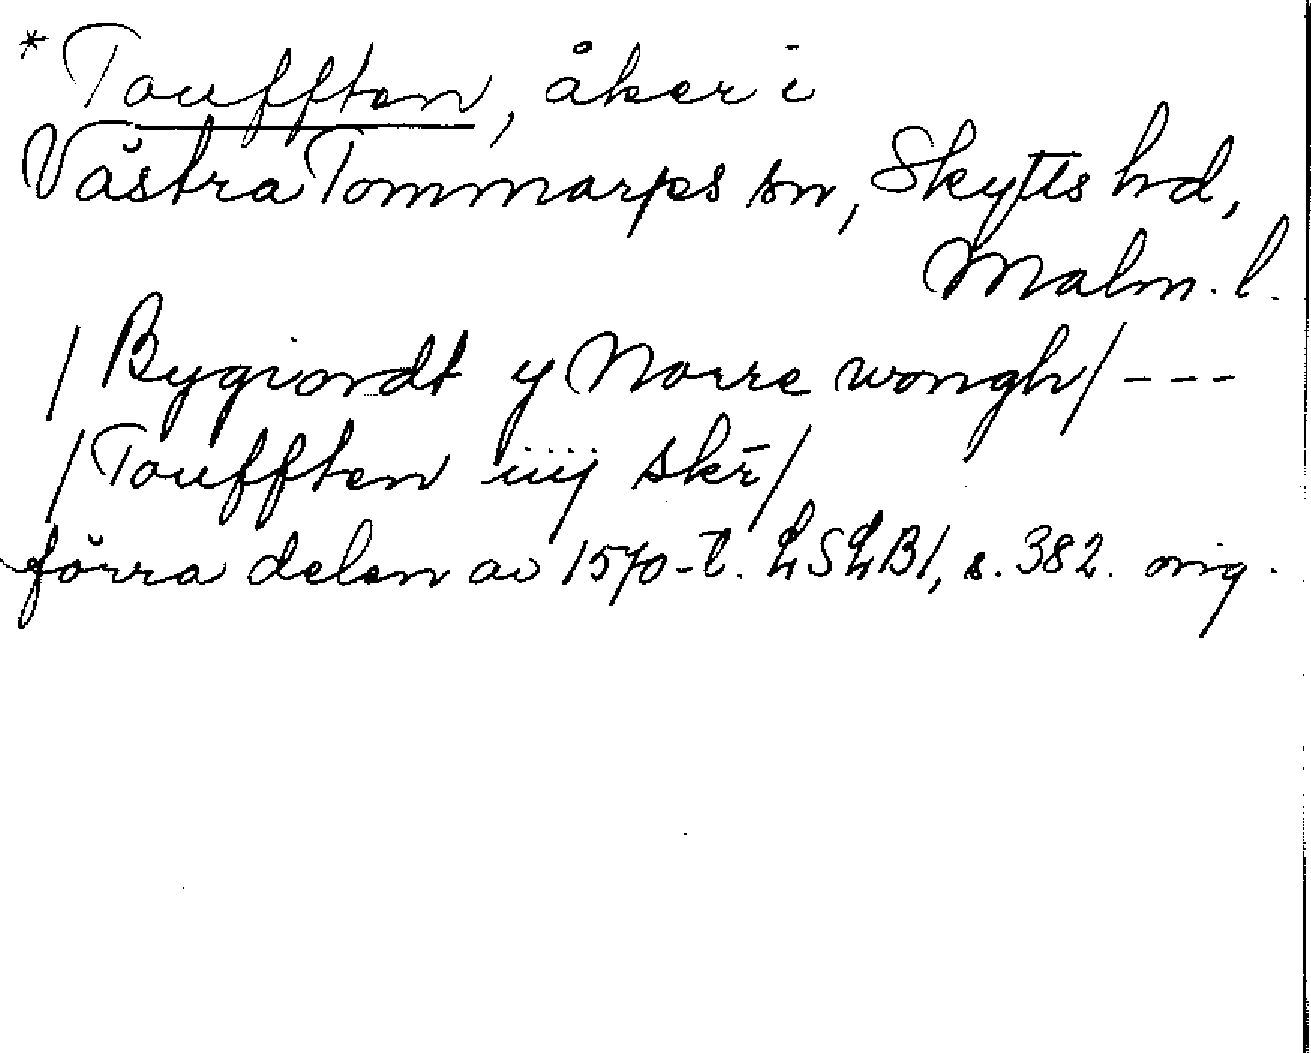 *Toufften, åker i
Västra Tommarps sn, Skytts hd,
Malm. l.
/Bygiordt y Norre wongh/---
/Toufften iiij skr̄/
förra delen av 1570-t. LSLB1, s. 382. orig.